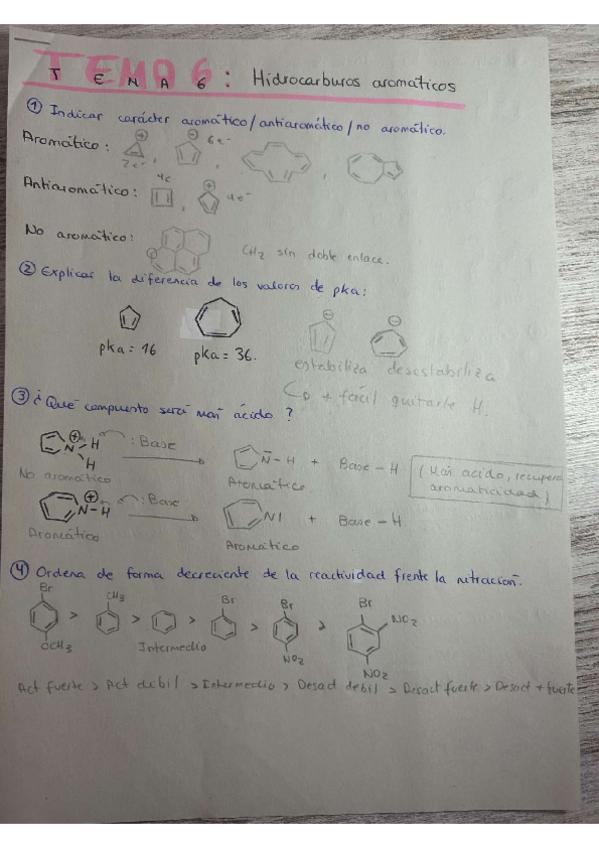 TEMA 6: Hidrocarburos aromáticos
① Indicar carácter aromático/antiaromático/no aromático.
Aromático: ⊕ 2e⁻, ⊖ 6e⁻, ,
Antiaromático: 4e, ⊕ 4e⁻
No aromático: CH₂ sin doble enlace.
② Explicar la diferencia de los valores de pka:
pka = 16 pka = 36. ⊖ ⊖
estabiliza desestabiliza
↳ + fácil quitarle H.
③ ¿Qué compuesto será más ácido?
⊕ N H H :Base → N̄ - H + Base - H (Más acido, recupera aromaticidad)
No aromático Aromático
⊕ N-H :Base → NI + Base - H.
Aromático Aromático
④ Ordena de forma decreciente de la reactividad frente la nitración.
Br OCH₃ > CH₃ > > Br > Br NO₂ > Br NO₂ NO₂
Intermedio
Act fuerte > Act debil > Intermedio > Desact debil > Desact fuerte > Desact + fuerte